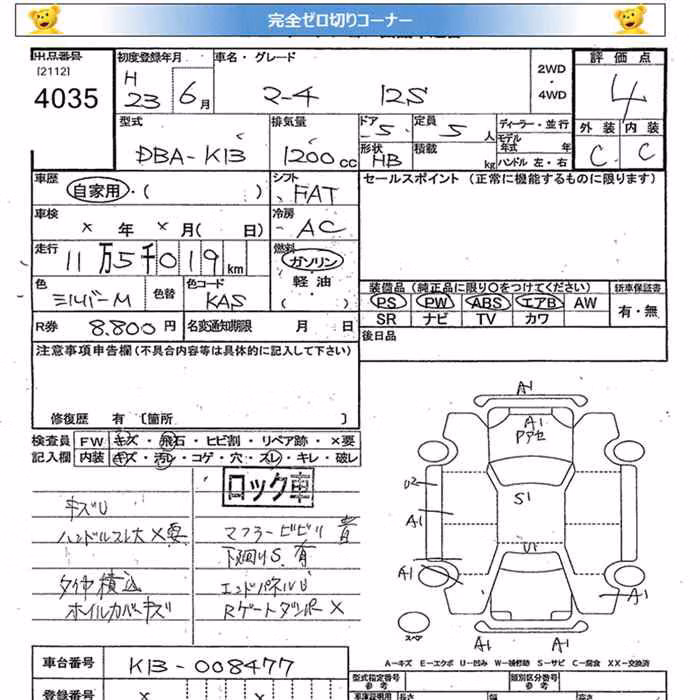 完全ゼロ切りコーナー
出品番号
[2112]
4035
初度登録年月
H
23年6月
車名・グレード
マーチ 12S
2WD
・
4WD
評価点
4
外装 内装
C C
型式
DBA-K13
排気量
1200cc
ドア
5
定員
5人
形状
HB
積載
kg
ディーラー・並行
モデル
年式 年
ハンドル 左・右
車歴
自家用・( )
シフト
FAT
セールスポイント (正常に機能するものに限ります)
車検
× 年 × 月( 日)
冷房
AC
走行
11万5千019km
燃料
ガソリン
・
軽油
( )
色
シルバーM
色替
色コード
KAS
装備品(純正品に限り○をつけてください)
PS PW ABS エアB AW
SR ナビ TV カワ
新車保証書
有・無
R券 8.800円
名変通知期限 月 日
後日品
注意事項申告欄(不具合内容等は具体的に記入して下さい)
修復歴 有 〔箇所 〕
検査員
記入欄
FW キズ・飛石・ヒビ割・リペア跡・×要
内装 キズ・汚レ・コゲ・穴・スレ・キレ・破レ
ロック車
キズU
ハンドルスレ大 ×要
タイヤ積込
ホイルカバーキズ
マフラービビリ音
下廻りS有
エンドパネルU
Rゲートダンパー×
A1
A1
アアセ
U2
S1
A1
U1
A1
A1
A1
A1
スペア
A-キズ E-エクボ U-凹み W-補修跡 S-サビ C-腐食 XX-交換済
車台番号
K13-008477
登録番号
× ×
型式指定番号
参考
類別区分番号
参考
長さ
幅
高さ